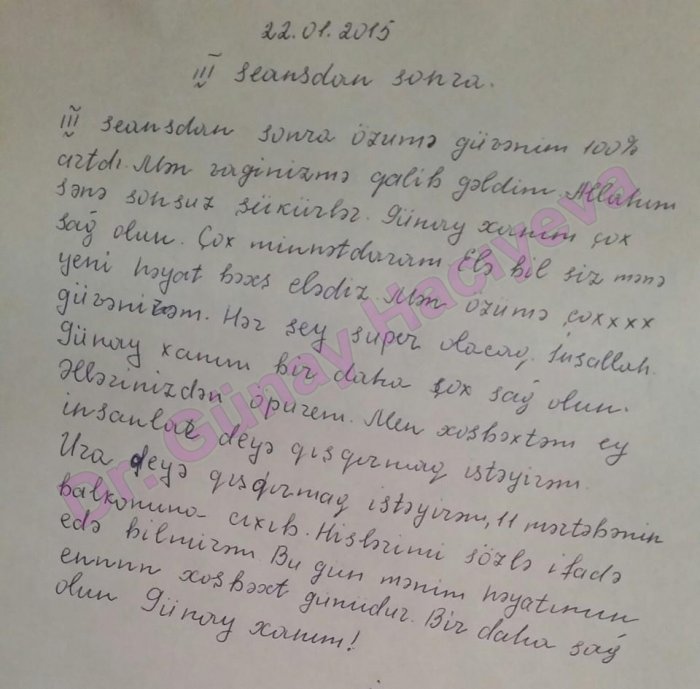 22.01.2015
III seansdan sonra.
III seansdan sonra özümə güvənim 100%
artdı. Mən vaginizmə qalib gəldim. Allahım
sənə sonsuz şükürlər. Günay xanım çox
sağ olun. Çox minnətdaram. Elə bil siz mənə
yeni həyat bəxş elədiz. Mən özümə çoxxxx
güvənirəm. Hər şey super olacaq. İnşallah.
Günay xanım bir daha çox sağ olun.
Əllərinizdən öpürem. Men xoşbəxtəm ey
insanlar deyə qışqırmaq istəyirəm.
Ura deyə qışqırmaq istəyirəm, 11 mərtəbənin
balkonuna cıxıb. Hislərimi sözlə ifadə
edə bilmirəm. Bu gun mənim həyatımın
ennnn xoşbəxt günüdur. Bir daha sağ
olun Günay xanım!
Dr. Günay Hacıyeva